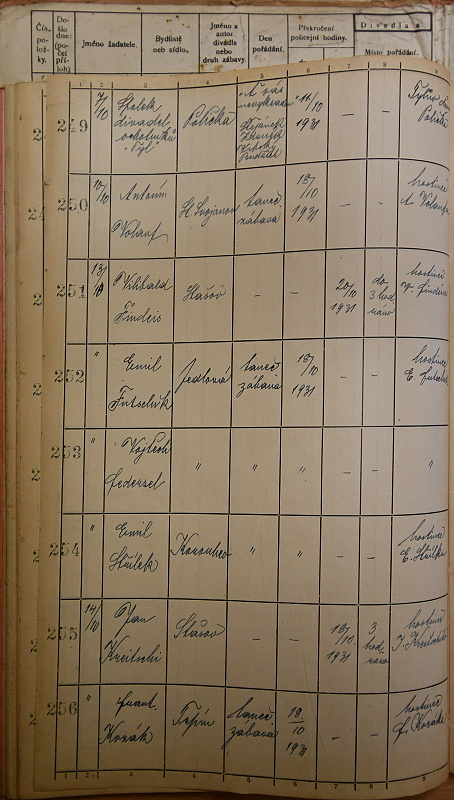 Čís. po- ložky.
Do- šlo dne: (po- čet pří- loh)
Jméno žadatele.
Bydliště neb sídlo.
Jméno a autor divadla nebo druh zábavy.
Den pořádání.
Překročení policejní hodiny.
Divadla a
Místo pořádání.
1 2 3 4 5 6 7 8 9
249 7/10 Spolek divadel. ochotníků "Tyl" Polička 14/10 1931 — — Polička
250 10/10 Antonín Volauf taneč. zábava 18/10 1931 — — hostinec A. Volauf
251 13/10 Willibald Findeis Stašov — — 20/10 1931 do 3 hod. ráno hostinec W. Findeise
252 " Emil Futschik Jedlová taneč. zábava 18/10 1931 — — hostinec E.
253 " Vojtěch Federsel " " " — — "
254 " Emil Korouhev " " — — hostinec E.
255 14/10 Jan Kreitschi Stašov — — 18/10 1931 3 hod. ráno hostinec J.
256 " Frant. Kozák Trpín taneč. zábava 18/10 1931 — — hostinec F. Kozák
1 2 3 4 5 6 7 8 9